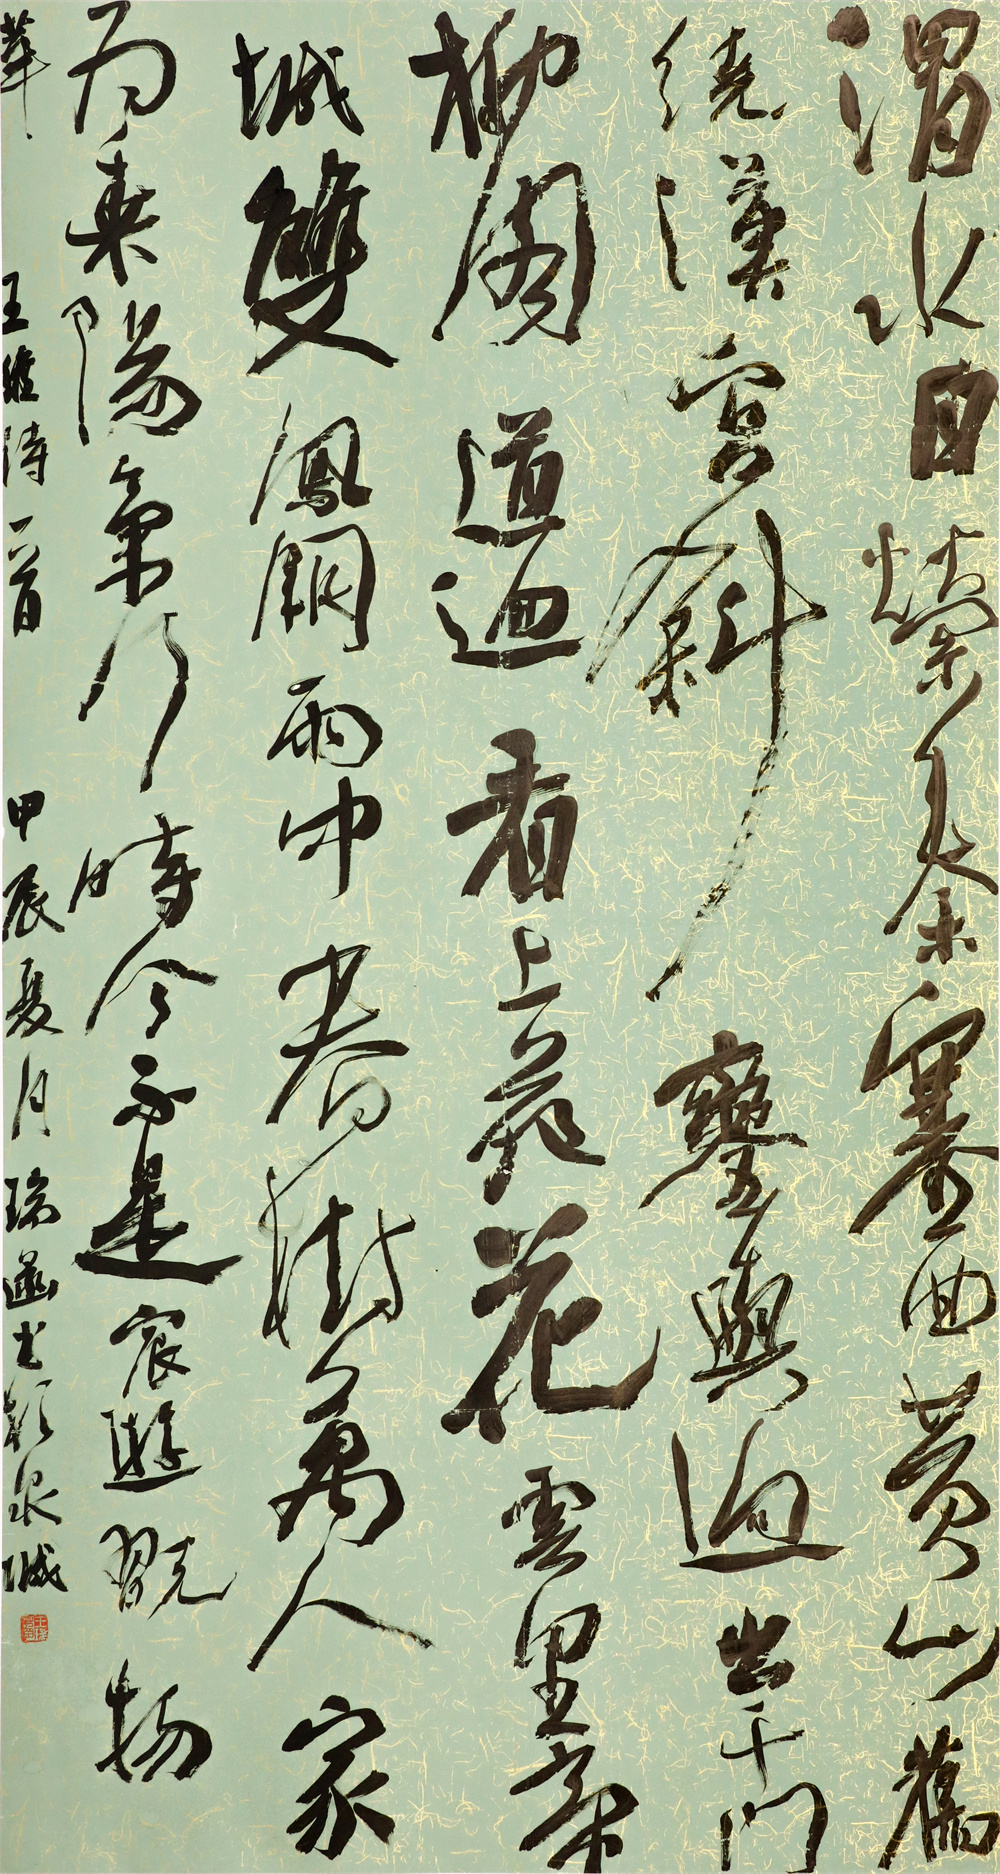 渭水自縈秦塞曲黄山舊
繞漢宮斜鑾輿迥出千門
柳閣道迴看上苑花雲里帝
城雙鳳闕雨中春樹萬人家
為乘陽氣行時令不是宸遊翫物
華 王維詩一首 甲辰夏月 瑞书於泉城